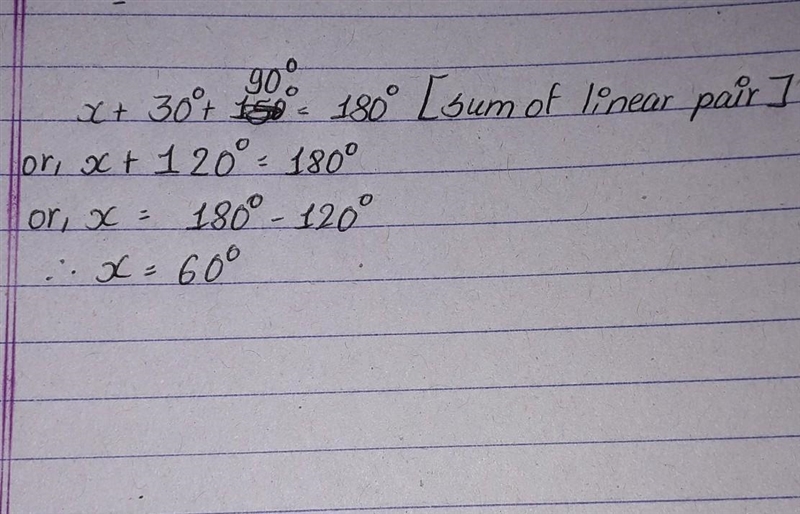 x + 30° + 90° = 180° [sum of linear pair]
or, x + 120° = 180°
or, x = 180° - 120°
∴ x = 60°